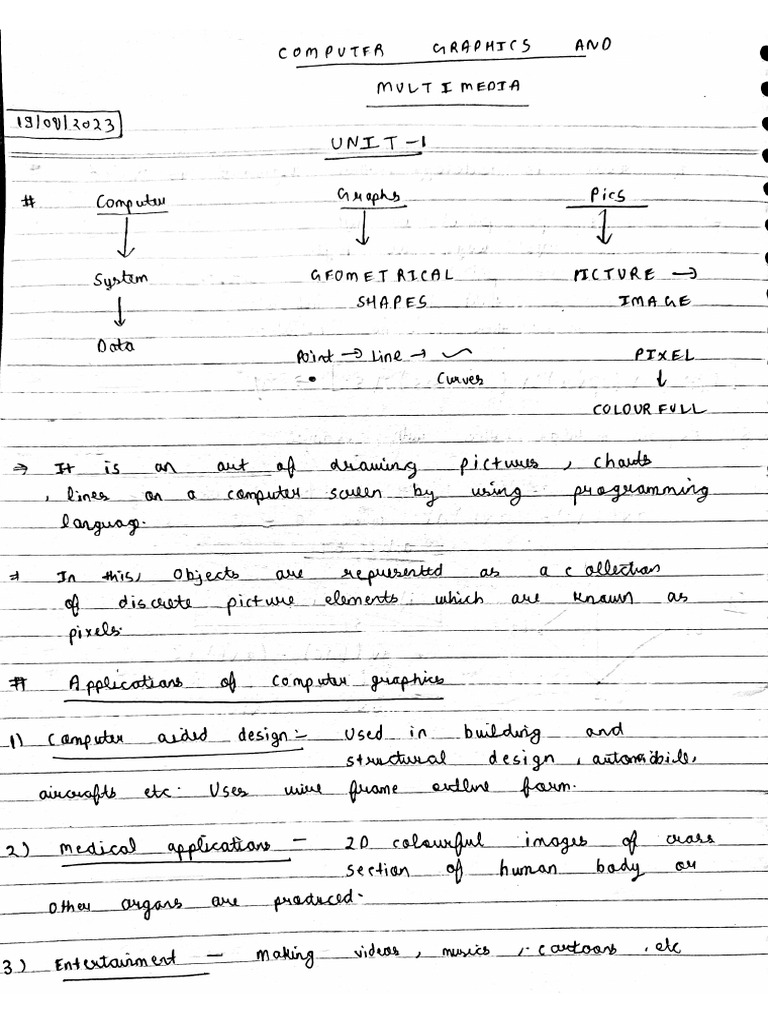 COMPUTER GRAPHICS AND
MULTIMEDIA
UNIT-1
# Computer Graphs Pics
System GEOMETRICAL PICTURE →
SHAPES IMAGE
Data
Point → Line → PIXEL
Curves
COLOURFULL
⇒ It is an art of drawing pictures, charts
, lines on a computer screen by using programming
language.
⇒ In this, Objects are represented as a collection
of discrete picture elements which are known as
pixels.
# Applications of computer graphics
1) Computer aided design:- Used in building and
structural design, automobile,
aircrafts etc. Uses wire frame outline form.
2) Medical applications - 2D colourful images of cross
section of human body or
other organs are produced.
3) Entertainment - Making videos, musics, cartoons, etc